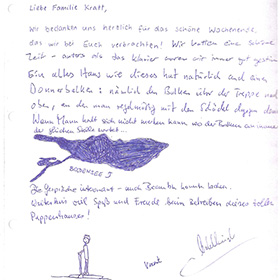 Liebe Familie Kratt,
wir bedanken uns herzlich für das schöne Wochenende,
das wir bei Euch verbrachten! Wir hatten eine schöne
Zeit - autors als das Klavier waren wir immer gut gestimmt
Ein altes Haus wie dieses hat natürlich auch einen
Donnerbalken: nämlich den Balken über der Treppe nach
oben, an den man regelmäßig mit dem Schädel
Wenn Mann halt sich nicht merken kann wo der Balken
der gleichen Stelle wartet...
BODENSEE
Die Gespräche interessant - auch Beamte können lachen.
Weiterhin viel Spaß und Freude beim Betreiben dieses tollen
Puppenhauses!